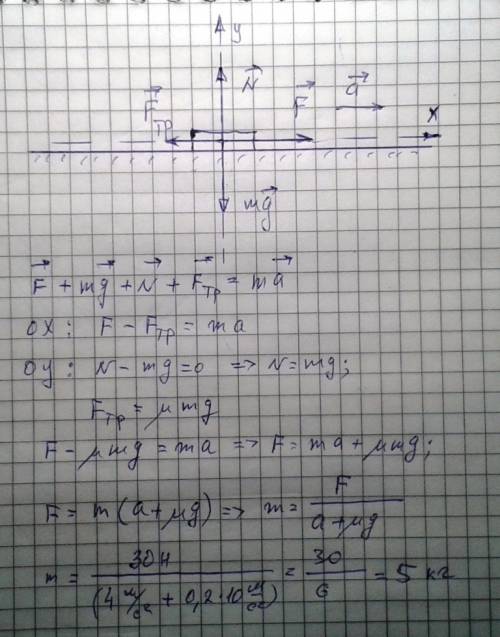 y
N⃗
F⃗тр
F⃗
a⃗
x
mg⃗
F⃗ + mg⃗ + N⃗ + F⃗тр = ma⃗
OX: F - Fтр = ma
OY: N - mg = 0 => N = mg;
Fтр = μmg
F - μmg = ma => F = ma + μmg;
F = m(a + μg) => m = F / (a + μg)
m = 30Н / (4 м/с² + 0,2·10 м/с²) = 30/6 = 5 кг